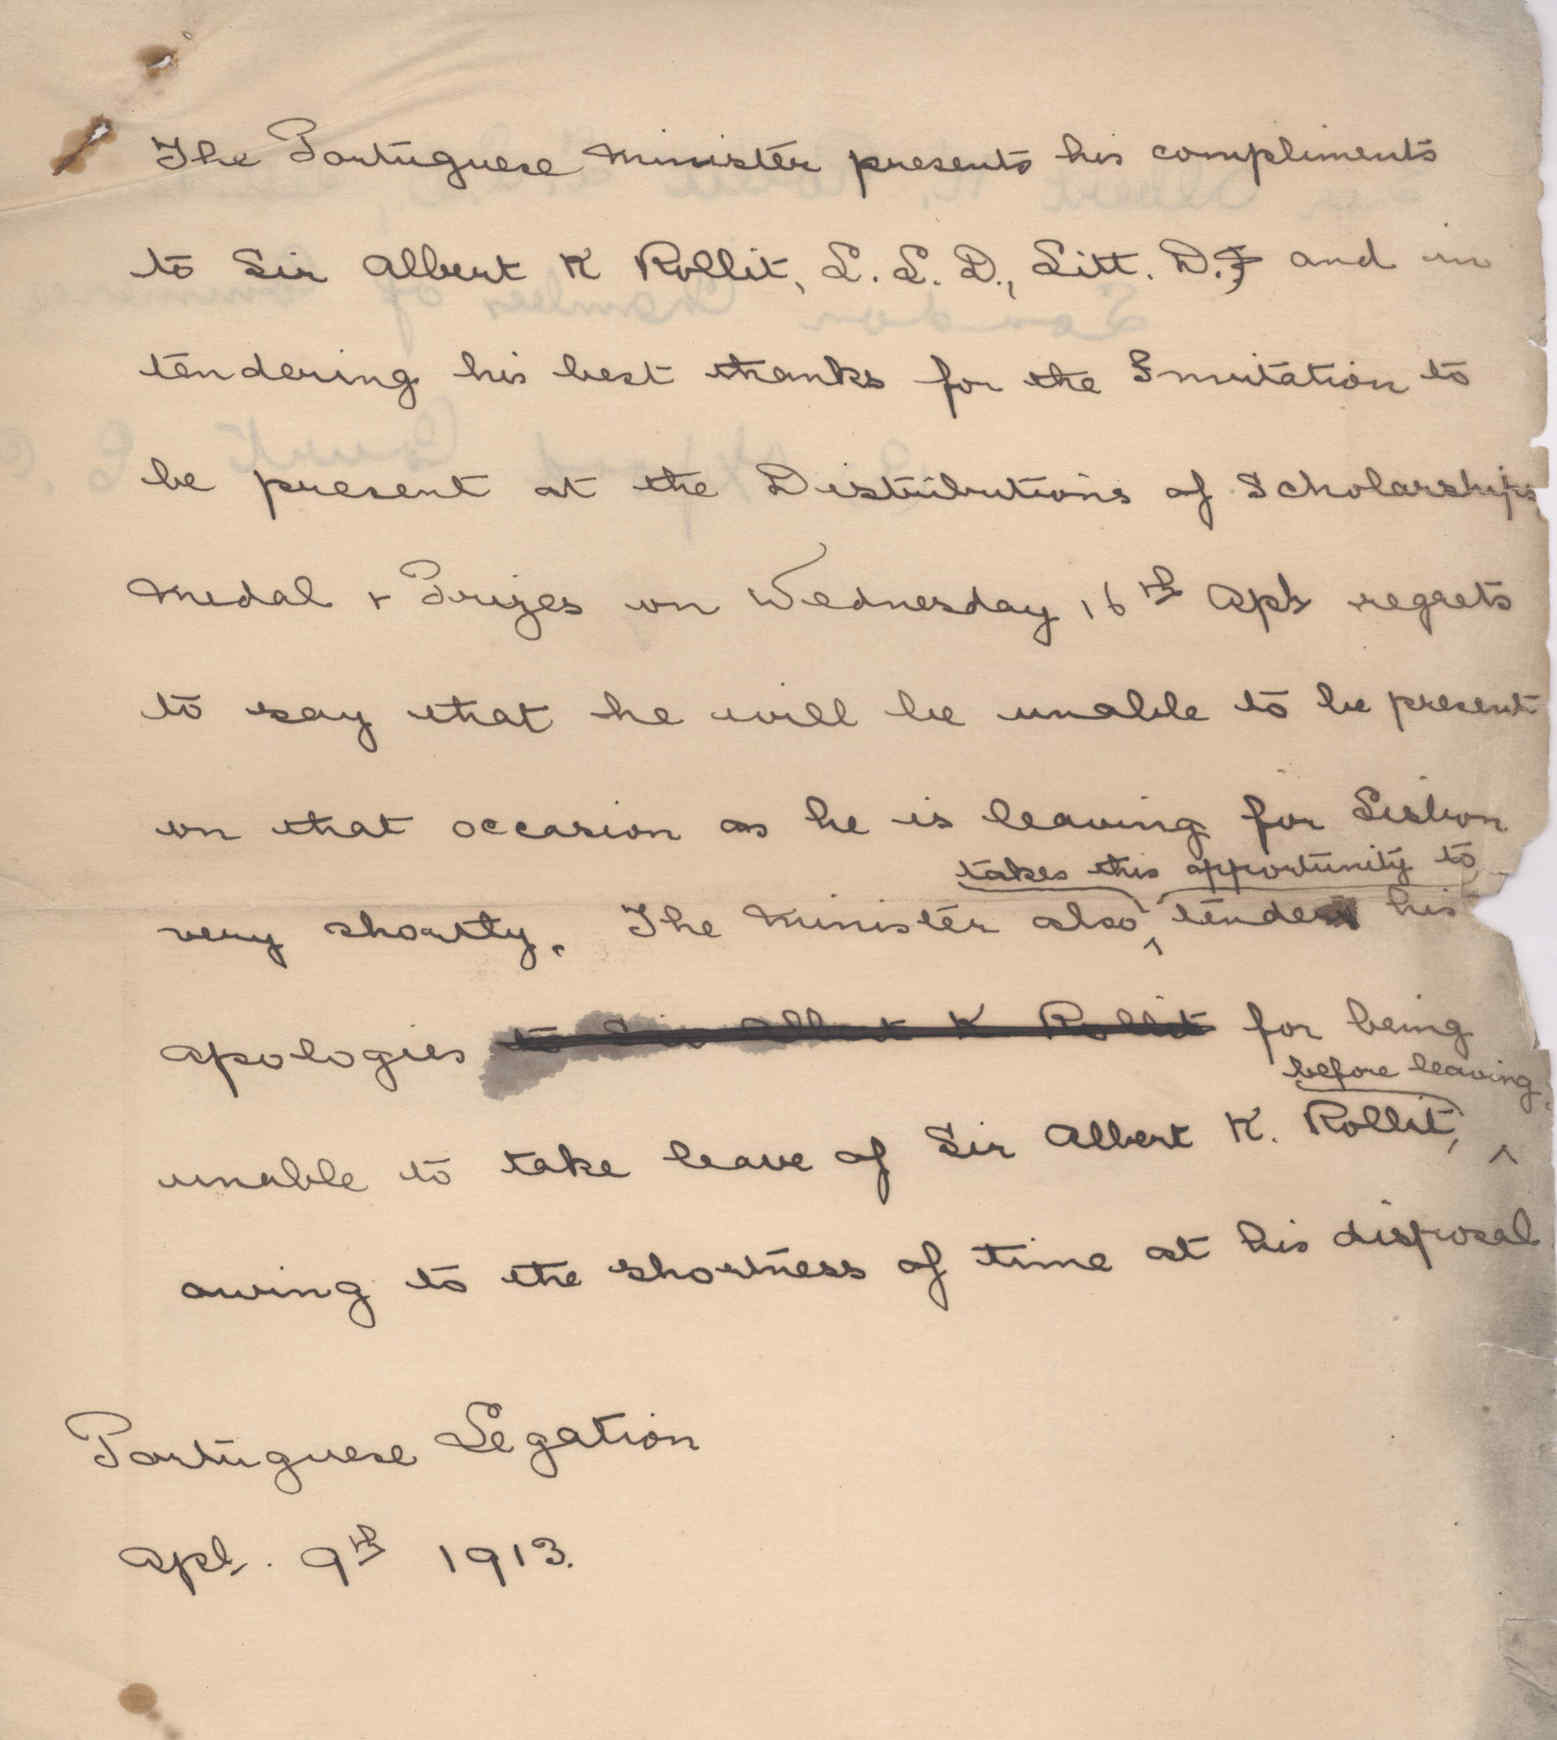 The Portuguese Minister presents his compliments
to Sir Albert K Rollit, L.L.D., Litt. D., and in
tendering his best thanks for the Invitation to
be present at the Distributions of Scholarships
Medal & Prizes on Wednesday 16th Apl regrets
to say that he will be unable to be present
on that occasion as he is leaving for Lisbon
takes this opportunity to
very shortly. The Minister also ^ tender his
apologies to Sir Albert K Rollit for being
before leaving,
unable to take leave of Sir Albert K. Rollit, ^
owing to the shortness of time at his disposal
Portuguese Legation
Apl. 9th 1913.